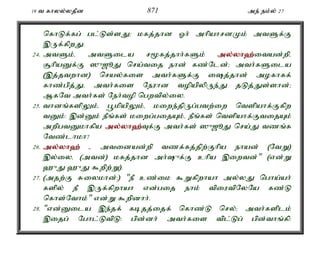 19 வகாலல்லதீன 871 அந்நம்ல் 27
கொடுக்கப் பட்டுள்ளது; மகத்தான ஓர் அரியாசனமும் அவளுக்கு இருக்கிறது.
24. அவளும், அவளுடைய சமூகத்தார்களும் அல்லாஹ்வையன்றி, சூரியனுக்கு ஸுஜூது செய்வதை நான் கண்டேன்; அவர்களுடைய (இத்தவறான) செயல்களை அவர்களுக்கு ஷைத்தான் அழகாகக் காண்பித்து, அவர்களை நேரான வழியிலிருந்து தடுத்துள்ளான்; ஆகவே அவர்கள் நேர்வழி பெறவில்லை.
25. வானங்களிலும், பூமியிலும், மறைந்திருப்பவற்றை வெளியாக்குகிற வனும்; இன்னும் நீங்கள் மறைப்பதையும், நீங்கள் வெளியாக்குவதையும் அறிபவனுமாகிய அல்லாஹ்வுக்கு அவர்கள் ஸுஜூது செய்து வணங்க வேண்டாமா?
26. அல்லாஹ் - அவனையன்றி வணக்கத்திற்குரிய நாயன் (வேறு) இல்லை. (அவன்) மகத்தான அர்ஷுக்கு உரிய இறைவன்" (என்று ஹுது ஹுது கூறிற்று).
27. (அதற்கு ஸுலைமான்:) "நீ உண்மை கூறுகிறாயா அல்லது பொய்யர் களில் நீ இருக்கிறாயா என்பதை நாம் விரைவிலேயே கண்டு கொள்வோம்" என்று கூறினார்.
28. "என்னுடைய இந்தக் கடிதத்தைக் கொண்டு செல்; அவர்களிடம் இதைப் போட்டுவிடு; பின்னர் அவர்களை விட்டுப் பின்வாங்கி;